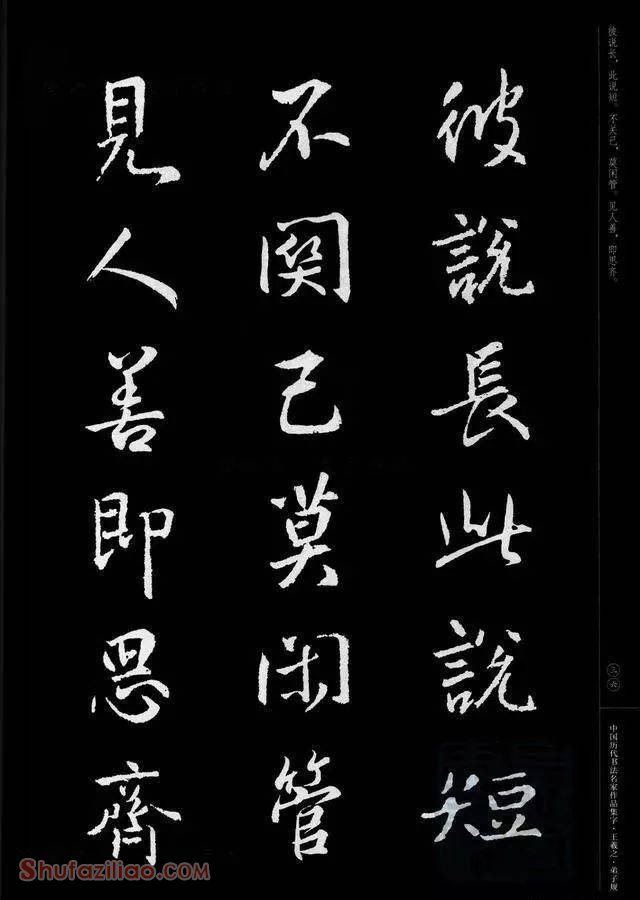 彼説長此説短
不関己莫閑管
見人善即思齊
彼说长，此说短。不关己，莫闲管。见人善，即思齐。
三六
中国历代书法名家作品集字·王羲之·弟子规
Shufaziliao.com